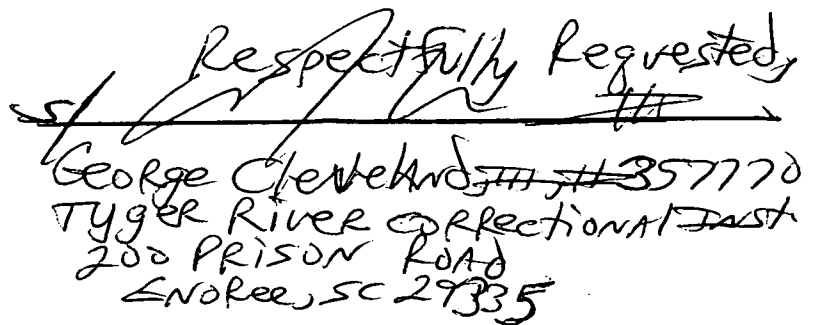 Respectfully Requested,
s/ III
George Cleveland, III, #357770
Tyger River Correctional Inst.
200 Prison Road
Enoree, SC 29335